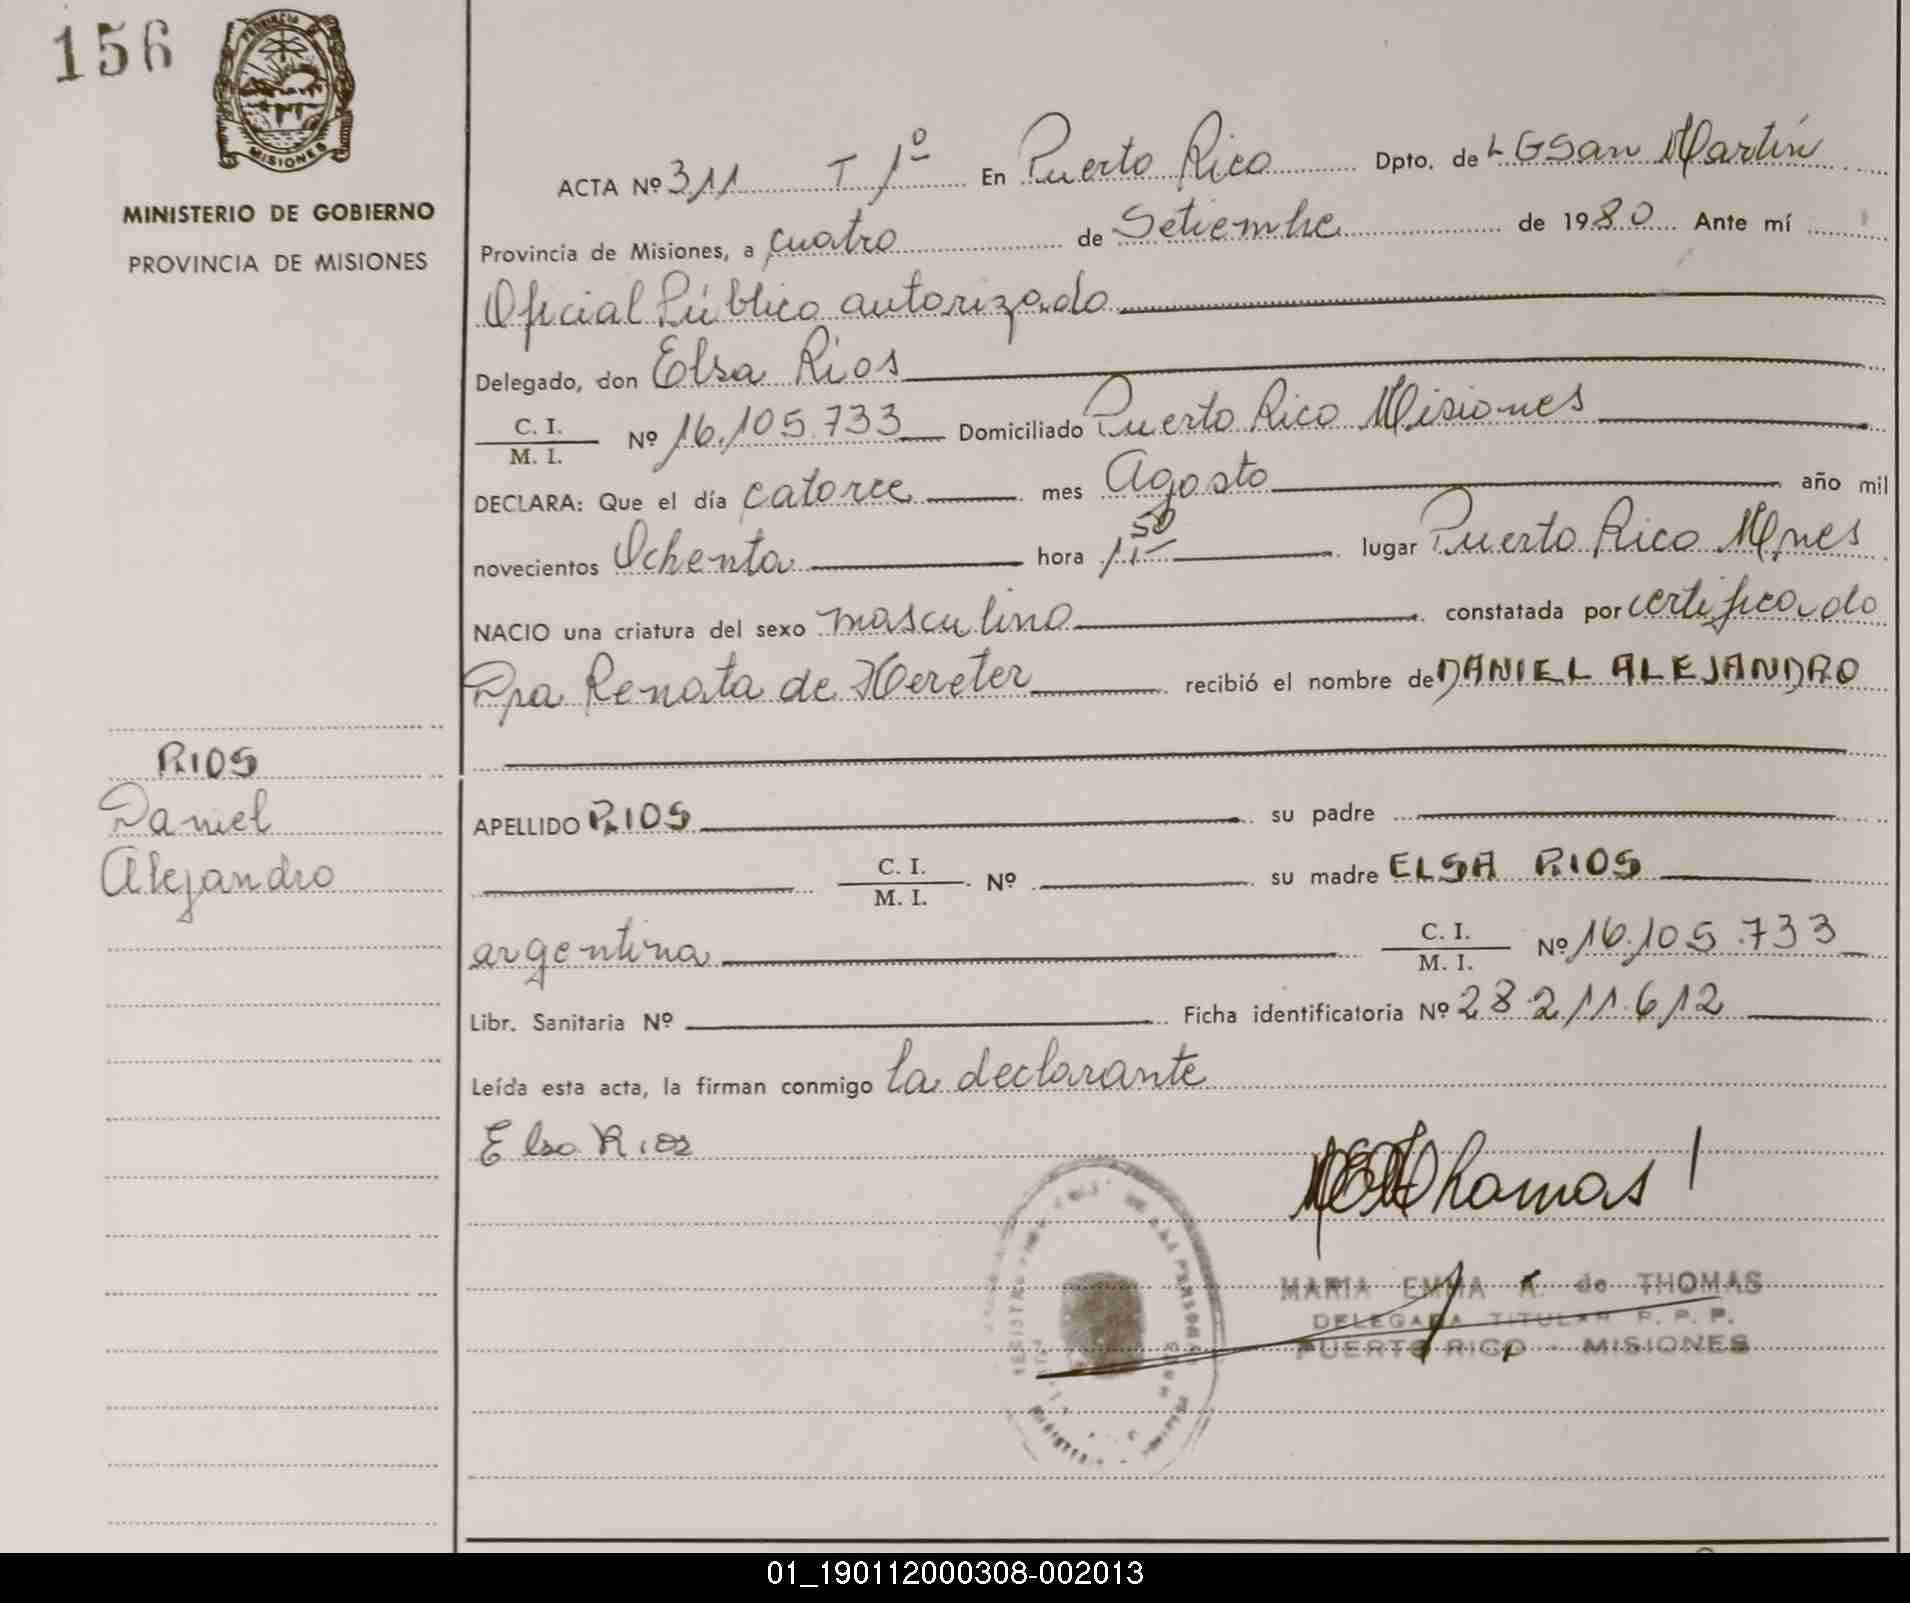 156
PROVINCIA DE
MISIONES
MINISTERIO DE GOBIERNO
PROVINCIA DE MISIONES
RIOS
Daniel
Alejandro
ACTA Nº 311 T 1º En Puerto Rico Dpto. de L G San Martín
Provincia de Misiones, a cuatro de Setiembre de 1980 Ante mí
Oficial Público autorizado
Delegado, don Elsa Rios
C. I.
M. I. Nº 16.105.733 Domiciliado Puerto Rico Misiones
DECLARA: Que el día catorce mes Agosto año mil
novecientos Ochenta hora 11 50 lugar Puerto Rico Mnes
NACIO una criatura del sexo masculino constatada por certificado
Dra Renata de Hereter recibió el nombre de DANIEL ALEJANDRO
APELLIDO RIOS su padre
C. I.
M. I. Nº su madre ELSA RIOS
argentina C. I.
M. I. Nº 16.105.733
Libr. Sanitaria Nº Ficha identificatoria Nº 28.211.612
Leída esta acta, la firman conmigo la declarante
Elsa Rios
Thomas
MARIA EMMA K. de THOMAS
DELEGADA TITULAR R. P. P.
PUERTO RICO - MISIONES
01_190112000308-002013